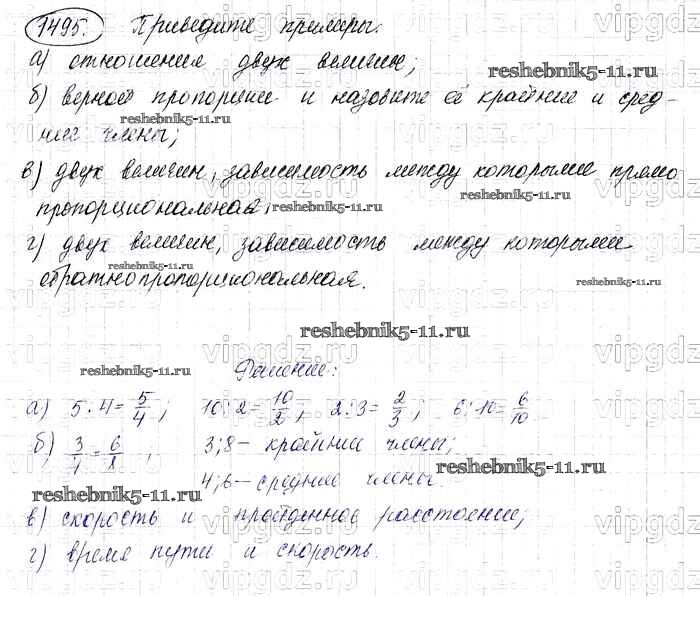 1495. Приведите примеры:
а) отношения двух величин;
reshebnik5-11.ru
б) верной пропорции и назовите её крайние и сред-
reshebnik5-11.ru
ние члены;
в) двух величин, зависимость между которыми прямо
reshebnik5-11.ru
пропорциональная; reshebnik5-11.ru
г) двух величин, зависимость между которыми
reshebnik5-11.ru
обратнопропорциональная. reshebnik5-11.ru
reshebnik5-11.ru
reshebnik5-11.ru Решение:
а) 5:4=5/4; 10:2=10/2; 2:3=2/3; 6:10=6/10
б) 3/4=6/8, 3;8 – крайние члены;
reshebnik5-11.ru
4;6 – средние члены.
reshebnik5-11.ru
в) скорость и пройденное расстояние;
reshebnik5-11.ru
г) время пути и скорость.
vipgdz.ru